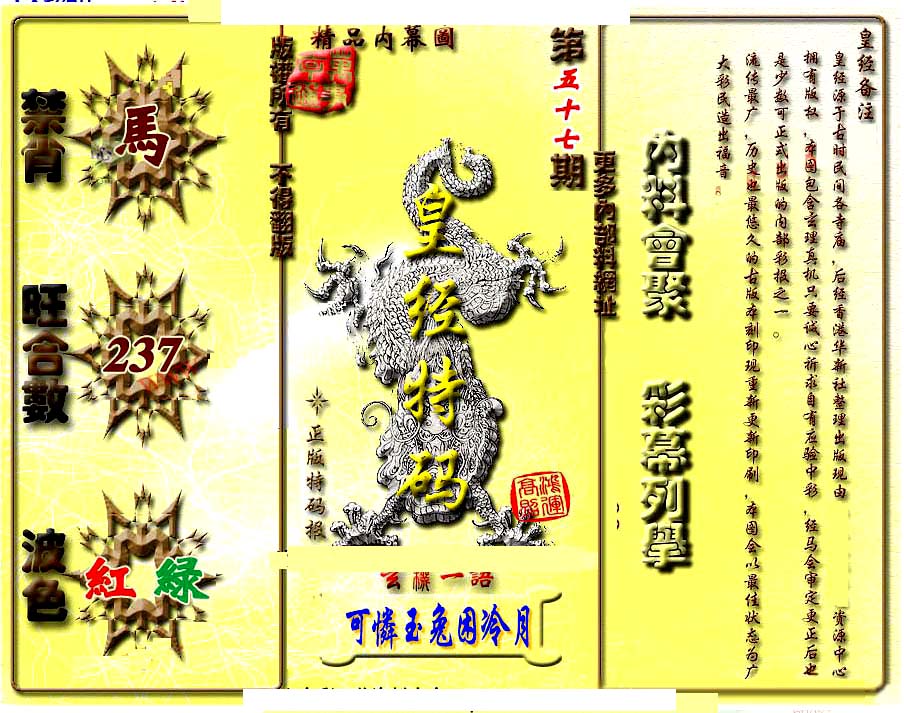 皇经备注
皇经源于古时民间各寺庙，后经香港华新社整理出版现由 资源中心
拥有版权，本图包含玄理真机只要诚心祈求自有应验中彩，经马会审定更正后也
是少数可正式出版的内部彩报之一。
流传最广，历史也最悠久的古版本刻印现重新更新印刷，本图会以最佳状态为广
大彩民造出福音
內料會聚 彩幕列舉
更多內部料網址
第五十七期
精品內幕圖
版谱所有 不得翻版
皇经特码
正版特码报
鴻運高照
玄機一語
可憐玉兔困冷月
禁肖
馬
旺合數
237
波色
紅 綠